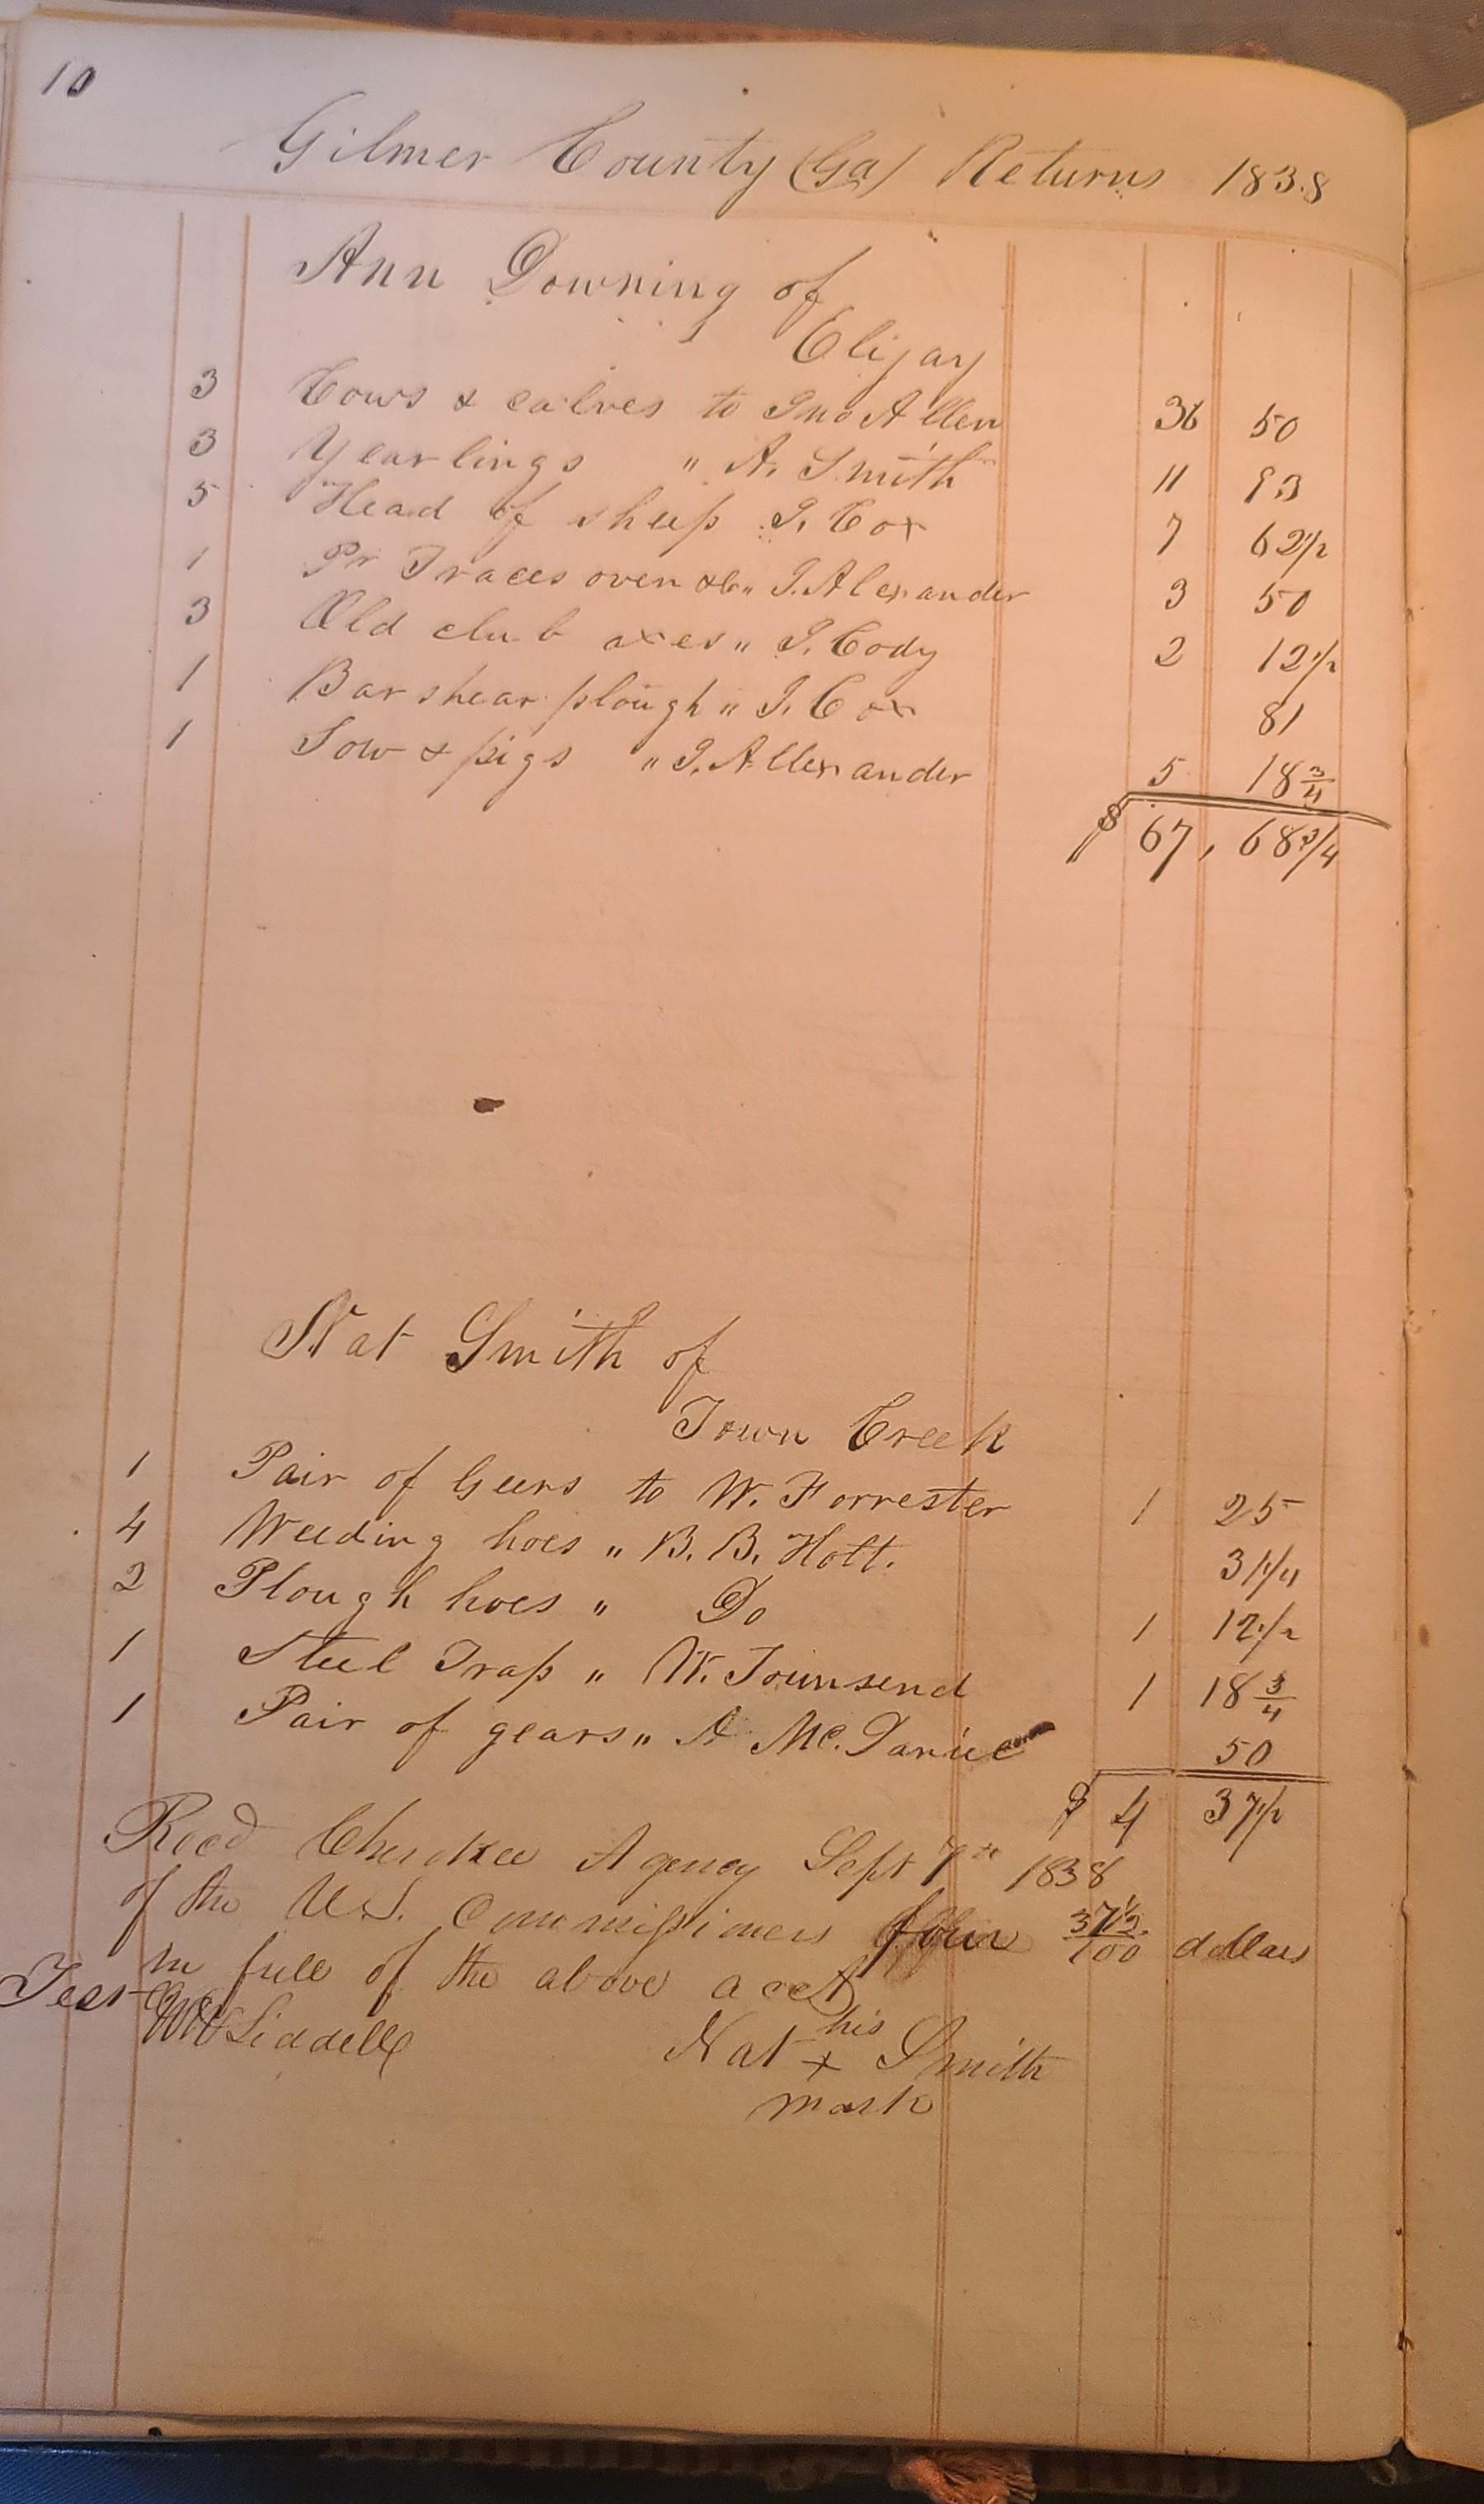 10
Gilmer County (Ga) Returns 1838
Ann Downing of
Elijay
3 Cows & calves to Jno Allen 36 50
3 Yearlings " A. Smith 11 93
5 Head of sheep J. Cox 7 62 1/2
1 Pr Traces oven &c " J. Alexander 3 50
3 Old club axes " J. Cody 2 12 1/2
1 Bar shear plough " J. Cox 81
1 Sow & pigs " J. Allexander 5 18 3/4
$ 67, 68 3/4
Nat Smith of
Town Creek
1 Pair of Geers to W. Forrester 1 25
4 Weeding hoes " B. B. Holt. 31 1/4
2 Plough hoes " Do 1 12 1/2
1 Steel Trap " W. Townsend 1 18 3/4
1 Pair of gears " A Mc. Daniel 50
$ 4 37 1/2
Recd Cherokee Agency Sept 7th 1838
of the U.S. Commissioners four 37 1/2/100 dollars
in full of the above acct
Test
Liddell
his
Nat x Smith
mark